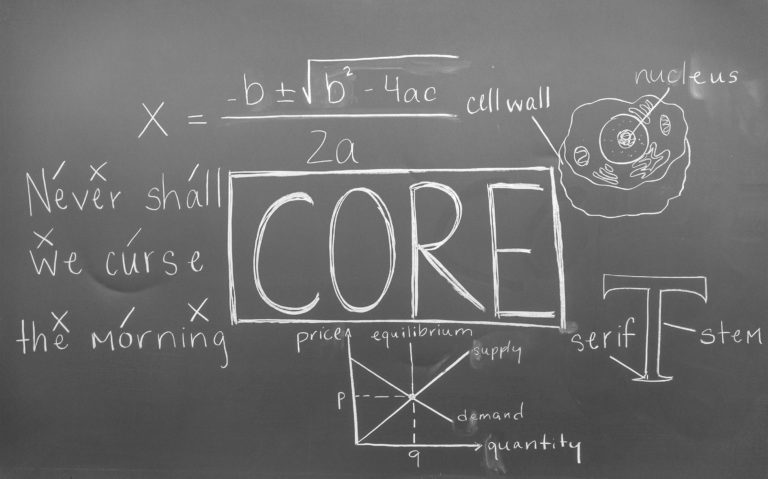 x = -b ± √b² - 4ac
2a
cell wall
nucleus
Never shall
we curse
the morning
CORE
price
equilibrium
supply
p
demand
q
quantity
T
serif
stem